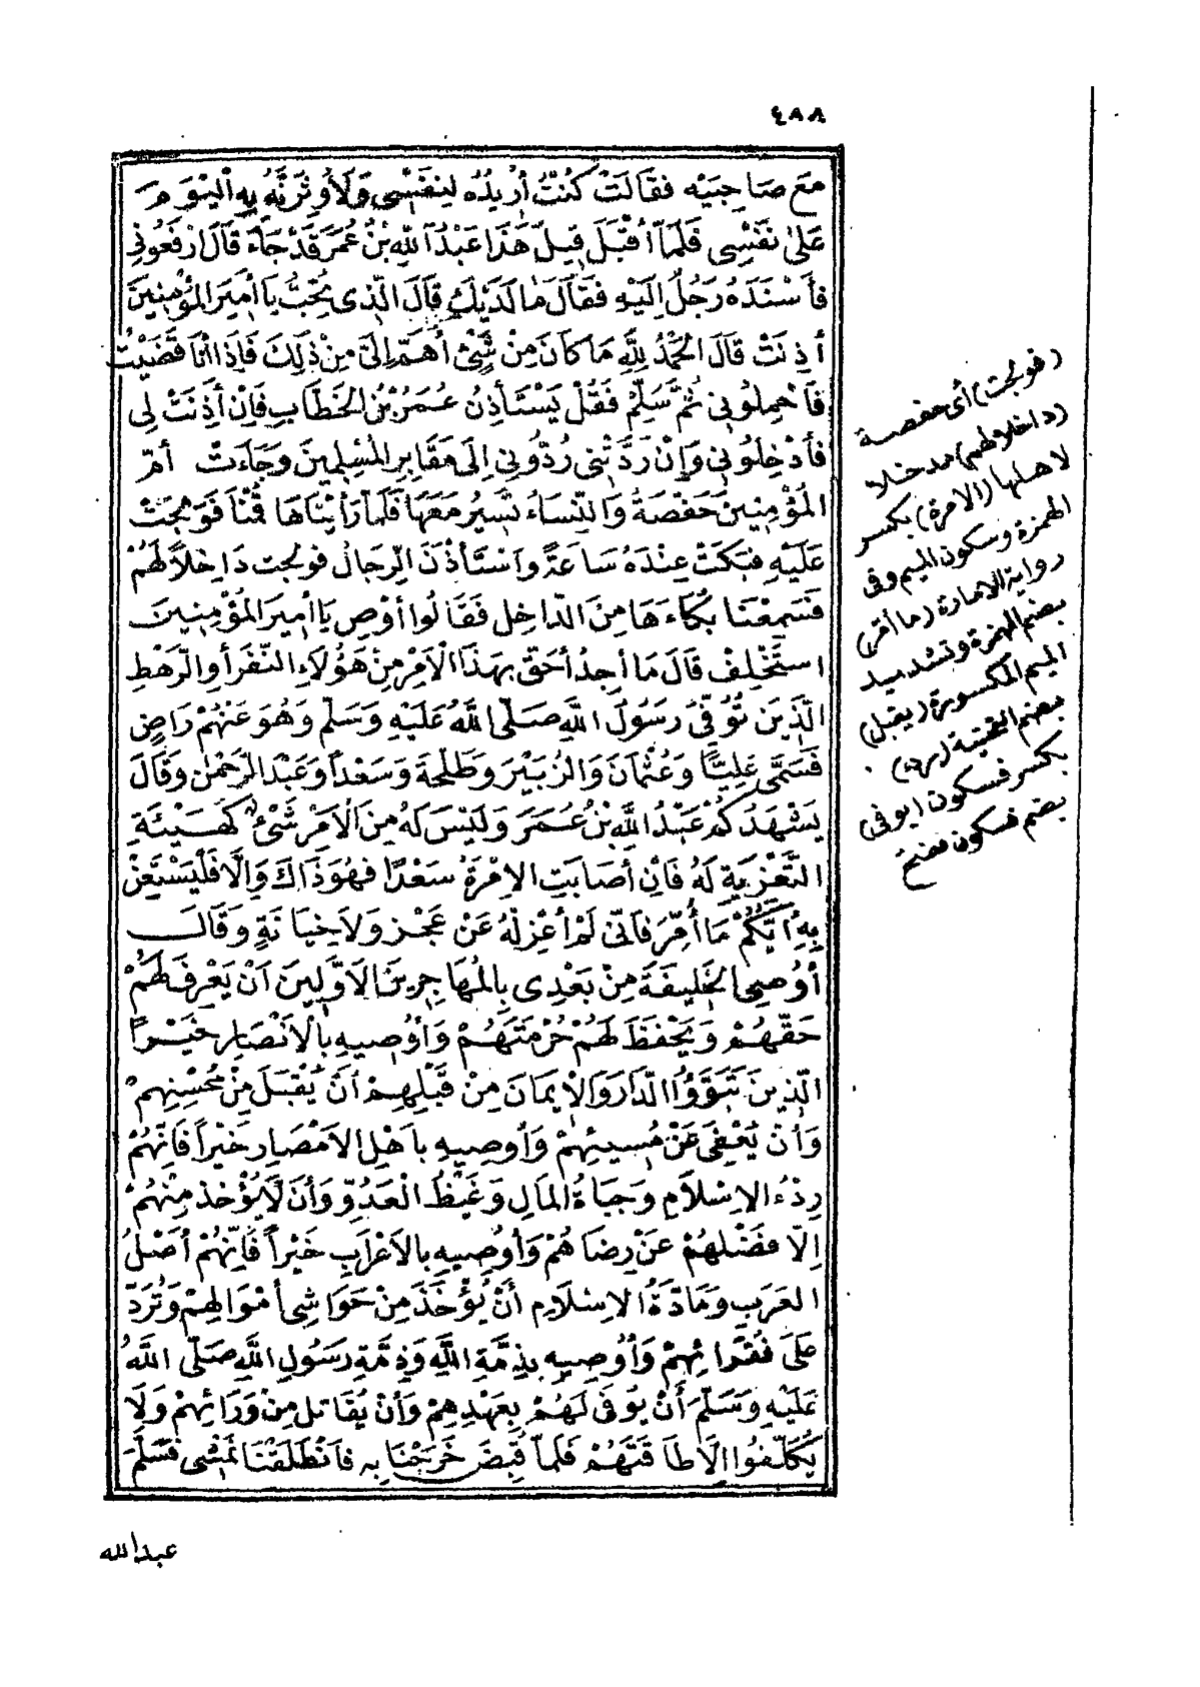 ٤٨٨
مَعَ صَاحِبَيْهِ فَقَالَتْ كُنْتُ أُرِيدُهُ لِنَفْسِى وَلَأُوثِرَنَّهُ بِهِ الْيَوْمَ
عَلَى نَفْسِى فَلَمَّا أَقْبَلَ قِيلَ هَذَا عَبْدُ اللّٰهِ بْنُ عُمَرَ قَدْ جَاءَ قَالَ ارْفَعُونِى
فَأَسْنَدَهُ رَجُلٌ إِلَيْهِ فَقَالَ مَا لَدَيْكَ قَالَ الَّذِى يُحِبُّ يَا أَمِيرَ الْمُؤْمِنِينَ
أَذِنَتْ قَالَ الْحَمْدُ لِلّٰهِ مَا كَانَ مِنْ شَىْءٍ أَهَمَّ إِلَىَّ مِنْ ذَلِكَ فَإِذَا أَنَا قَضَيْتُ
فَاحْمِلُونِى ثُمَّ سَلِّمْ فَقُلْ يَسْتَأْذِنُ عُمَرُ بْنُ الْخَطَّابِ فَإِنْ أَذِنَتْ لِى
فَأَدْخِلُونِى وَإِنْ رَدَّتْنِى رُدُّونِى إِلَى مَقَابِرِ الْمُسْلِمِينَ وَجَاءَتْ أُمُّ
الْمُؤْمِنِينَ حَفْصَةُ وَالنِّسَاءُ تَسِيرُ مَعَهَا فَلَمَّا رَأَيْنَاهَا قُمْنَا فَوَلَجَتْ
عَلَيْهِ فَبَكَتْ عِنْدَهُ سَاعَةً وَاسْتَأْذَنَ الرِّجَالُ فولجت دَاخِلًا لَهُمْ
فَسَمِعْنَا بُكَاءَهَا مِنَ الدَّاخِلِ فَقَالُوا أَوْصِ يَا أَمِيرَ الْمُؤْمِنِينَ
اسْتَخْلِفْ قَالَ مَا أَجِدُ أَحَقَّ بِهَذَا الْأَمْرِ مِنْ هَؤُلَاءِ النَّفَرِ أَوِ الرَّهْطِ
الَّذِينَ تُوُفِّىَ رَسُولُ اللّٰهِ صَلَّى اللّٰهُ عَلَيْهِ وَسَلَّمَ وَهُوَ عَنْهُمْ رَاضٍ
فَسَمَّى عَلِيًّا وَعُثْمَانَ وَالزُّبَيْرَ وَطَلْحَةَ وَسَعْداً وَعَبْدَ الرَّحْمٰنِ وَقَالَ
يَشْهَدُكُمْ عَبْدُ اللّٰهِ بْنُ عُمَرَ وَلَيْسَ لَهُ مِنَ الْأَمْرِ شَىْءٌ كَهَيْئَةِ
التَّعْزِيَةِ لَهُ فَإِنْ أَصَابَتِ الْإِمْرَةُ سَعْدًا فَهُوَ ذَاكَ وَإِلَّا فَلْيَسْتَعِنْ
بِهِ أَيُّكُمْ مَا أُمِّرَ فَإِنِّى لَمْ أَعْزِلْهُ عَنْ عَجْزٍ وَلَا خِيَانَةٍ وَقَالَ
أُوصِى الْخَلِيفَةَ مِنْ بَعْدِى بِالْمُهَاجِرِينَ الْأَوَّلِينَ أَنْ يَعْرِفَ لَهُمْ
حَقَّهُمْ وَيَحْفَظَ لَهُمْ حُرْمَتَهُمْ وَأُوصِيهِ بِالْأَنْصَارِ خَيْرًا
الَّذِينَ تَبَوَّؤُا الدَّارَ وَالْإِيمَانَ مِنْ قَبْلِهِمْ أَنْ يُقْبَلَ مِنْ مُحْسِنِهِمْ
وَأَنْ يُعْفَى عَنْ مُسِيئِهِمْ وَأُوصِيهِ بِأَهْلِ الْأَمْصَارِ خَيْراً فَإِنَّهُمْ
رِدْءُ الْإِسْلَامِ وَجُبَاةُ الْمَالِ وَغَيْظُ الْعَدُوِّ وَأَنْ لَا يُؤْخَذَ مِنْهُمْ
إِلَّا فَضْلُهُمْ عَنْ رِضَاهُمْ وَأُوصِيهِ بِالْأَعْرَابِ خَيْراً فَإِنَّهُمْ أَصْلُ
الْعَرَبِ وَمَادَّةُ الْإِسْلَامِ أَنْ يُؤْخَذَ مِنْ حَوَاشِى أَمْوَالِهِمْ وَتُرَدَّ
عَلَى فُقَرَائِهِمْ وَأُوصِيهِ بِذِمَّةِ اللّٰهِ وَذِمَّةِ رَسُولِ اللّٰهِ صَلَّى اللّٰهُ
عَلَيْهِ وَسَلَّمَ أَنْ يُوفَى لَهُمْ بِعَهْدِهِمْ وَأَنْ يُقَاتَلَ مِنْ وَرَائِهِمْ وَلَا
يُكَلَّفُوا إِلَّا طَاقَتَهُمْ فَلَمَّا قُبِضَ خَرَجْنَا بِهِ فَانْطَلَقْنَا نَمْشِى فَسَلَّمَ
(فولجت) أى حفصة
(داخلا لهم) مدخلا
لاهلها (الامرة) بكسر
الهمزة وسكون الميم وفى
رواية الامارة (ما أمر)
بضم الهمزة وتشديد
الميم المكسورة (يقبل)
بضم التحتية (ردء)
بكسر فسكون (يوفى)
بضم فسكون ففتح
عبدالله